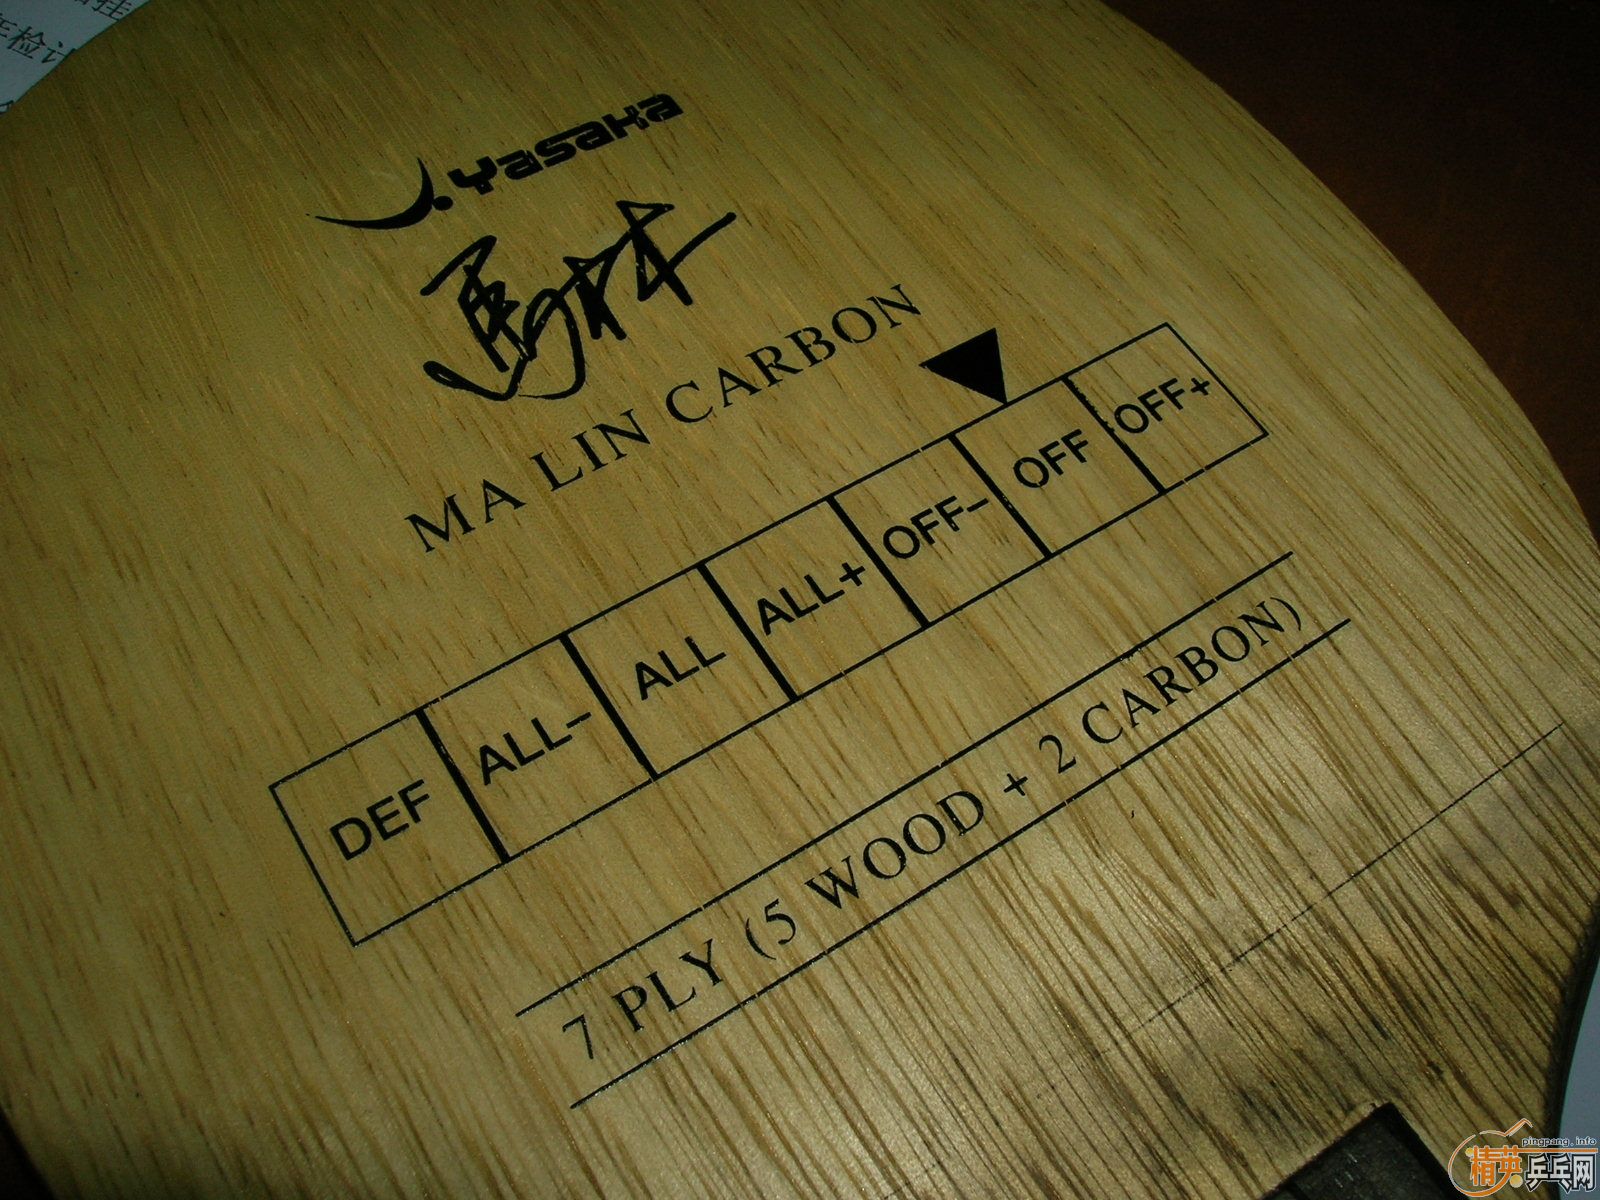 年检计
Yasaka
馬林
MA LIN CARBON
DEF ALL- ALL ALL+ OFF- OFF OFF+
7 PLY (5 WOOD + 2 CARBON)
pingpang.info
精英乒乓网